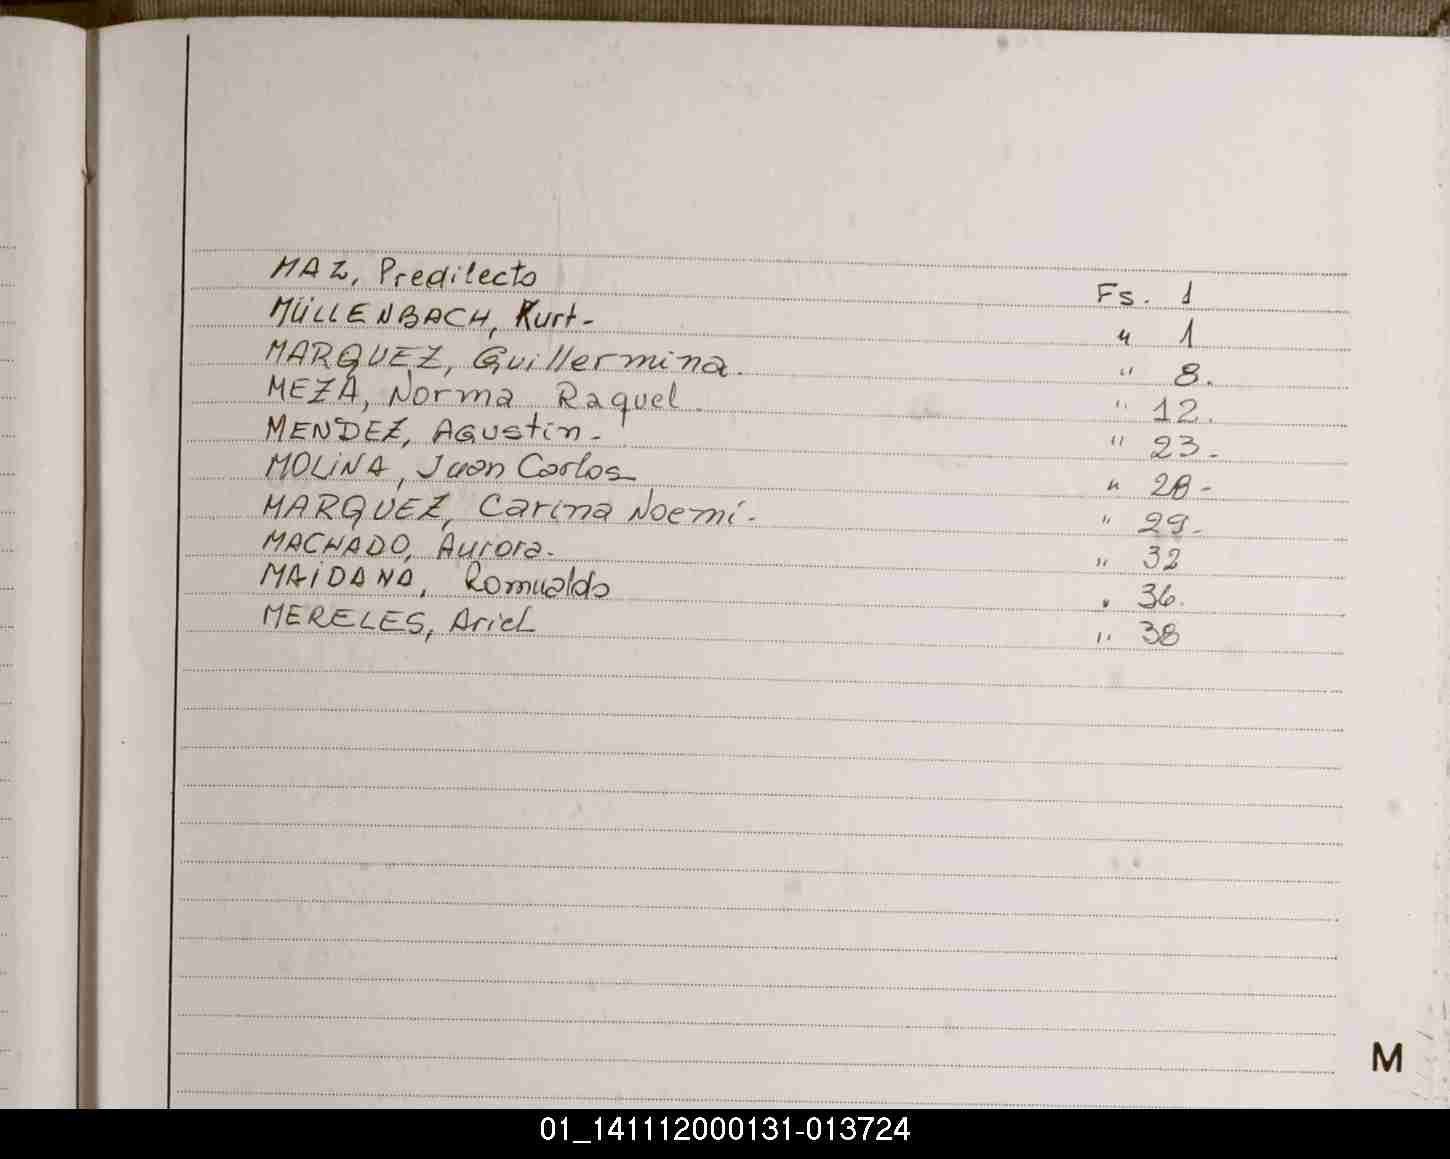 MAZ, Predilecto Fs. 1
MÜLLENBACH, Kurt- " 1
MARQUEZ, Guillermina. " 8.
MEZA, Norma Raquel. " 12.
MENDEZ, AGustin- " 23-
MOLiNA, Juan Carlos " 28-
MARQUEZ, Carina Noemí- " 29-
MACHADO, Aurora- " 32
MAiDANA, Romualdo " 36.
MERELES, Ariel " 38
M
01_141112000131-013724